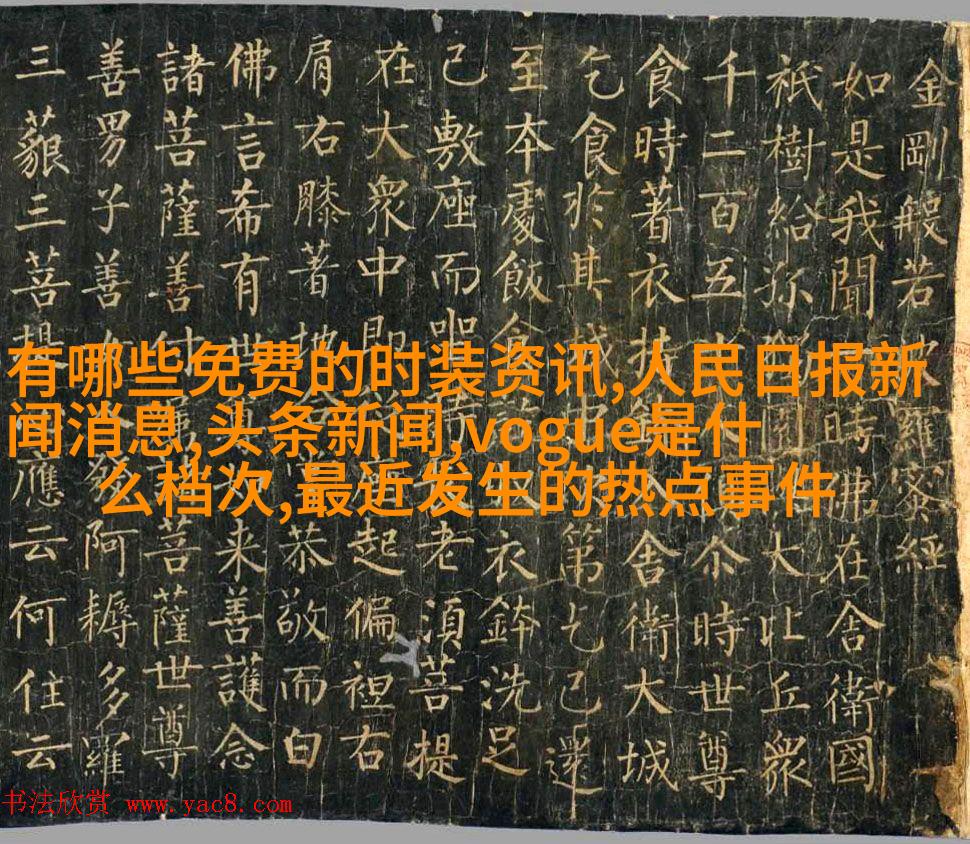 金剛般若羅蜜經
如是我聞時佛在舍衛國
祇樹給孤獨園大比丘眾
千二百五十人尒時世尊
食時著衣持入舍衛大城
乞食於其城中第乞已還
至本處飯食衣鉢洗足
已敷座而坐老須菩提
在大眾中即起偏袒右
肩右膝著地恭敬而白
佛言希有世来善護念
諸菩薩善付菩薩世尊
善男子善女發阿耨多羅
三藐三菩提應云何住云
有哪些免费的时装资讯,人民日报新
闻消息,头条新闻,vogue是什
么档次,最近发生的热点事件
书法欣赏 www.yac8.com